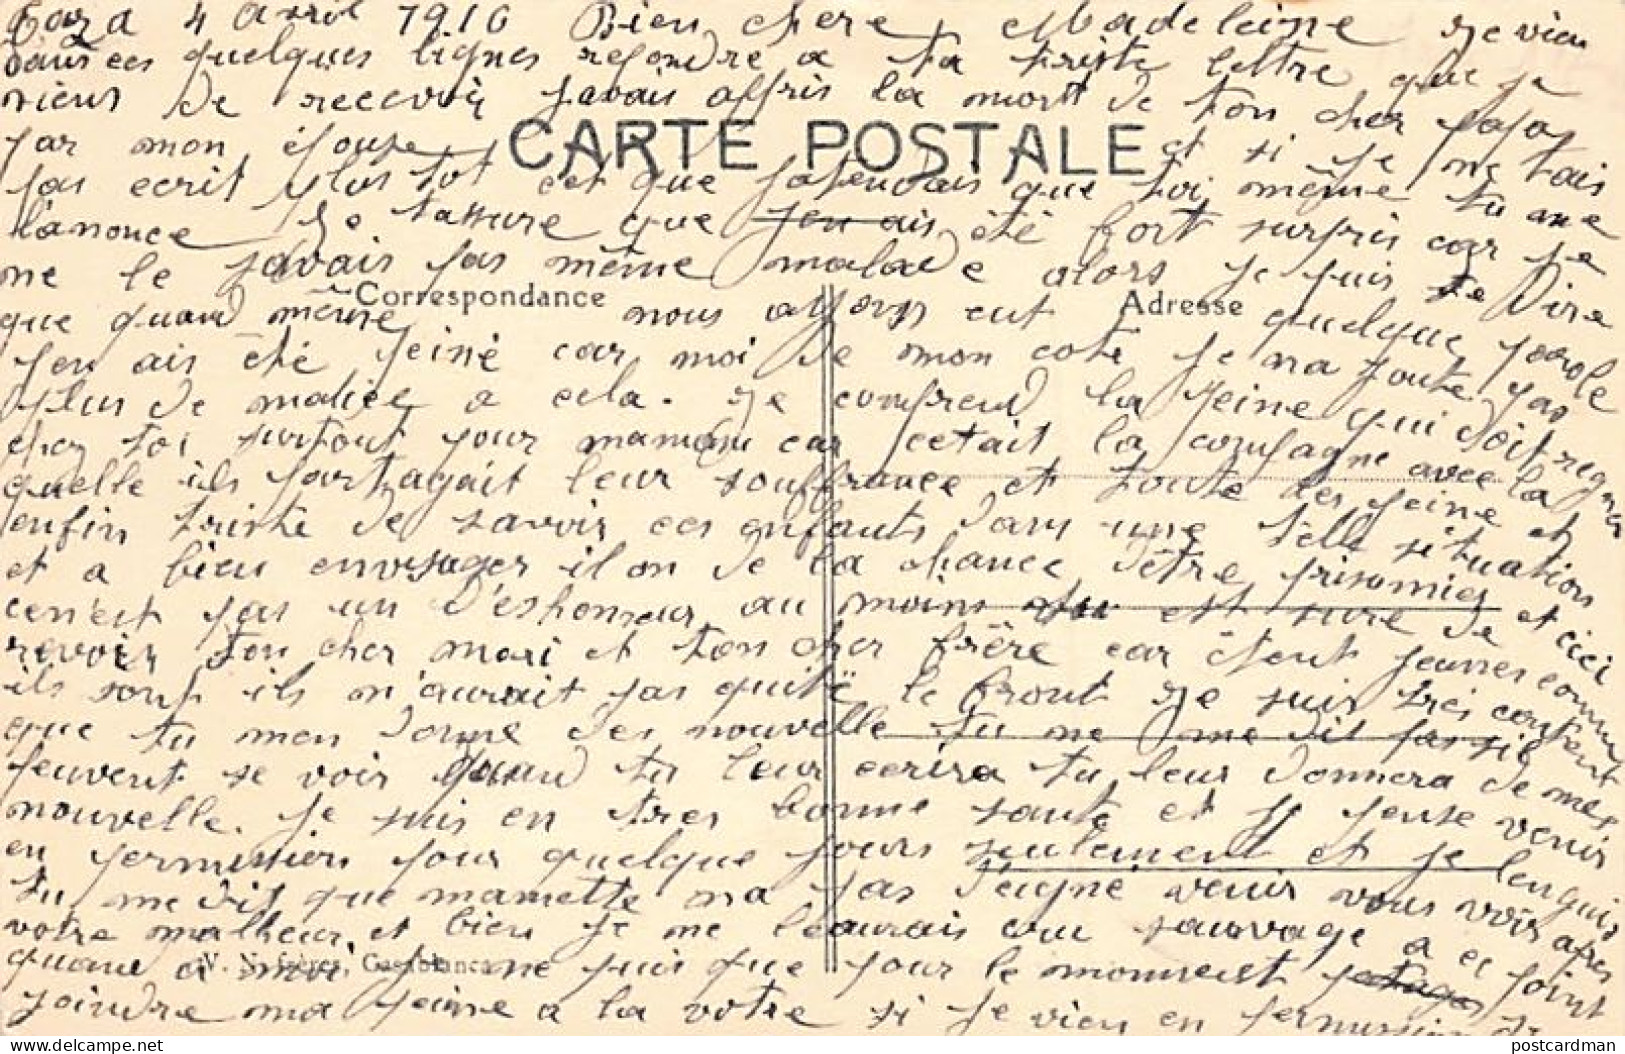 Taza 4 avril 1916 Bien chere Madeleine Je vien
dans ces quelques lignes repondre a ta triste lettre que je
viens de recevoir javais appris la mort de ton cher papa
par mon épouse et si je ne tais
CARTE POSTALE
pas ecrit plus tot cet que jatendais que toi même tu me
l'anonce Je tassure que jen ais été fort surpris car je
ne le savais pas même malade alors je puis te dire
que quand même nous ayons eut quelque parole
Correspondance
Adresse
jen ais été peiné car moi de mon coté je na joute pas
plus de malice a cela. Je comprend la peine qui doit regner
chez toi surtout pour maman car cetait la compagne avec la
quelle ils partagait leur souffrance et toute les peine et
enfin triste de savoir ces enfants dans une telle situation
et a bien envisager il on de la chance d'être prisonnies et ceci
cen'est pas un d'eshonneur au moins tu est sure de
revoir ton cher mari et ton cher frère car étant jeunes comme
ils sont ils n'aurait pas quitté le front Je suis très content
que tu men donne des nouvelle tu ne me dit pas sil
peuvent se voir quand tu leur ecrira tu leur donnera de mes
nouvelle. Je suis en tres bonne santé et je pense venir
en permission pour quelque jours seulement et je lenguis
tu me dit que mamette na pas deigné venir vous voir apres
votre malheur et bien je ne laurais cru sauvage a ce point
quand a moi je ne puis que pour le moment
V. N. frères, Casablanca
joindre ma peine a la votre si je vien en permission je
delcampe.net
postcardman